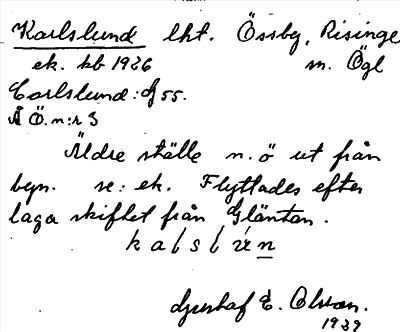 Karlslund lht. Össby, Risinge
ek. kb 1926 sn. Ögl
Carlslund: G 55.
Å Ö. n:r 3
Äldre ställe n. ö ut från
byn. se: ek. Flyttades efter
laga skiftet från Gläntan.
Gustaf E. Olson.
1939